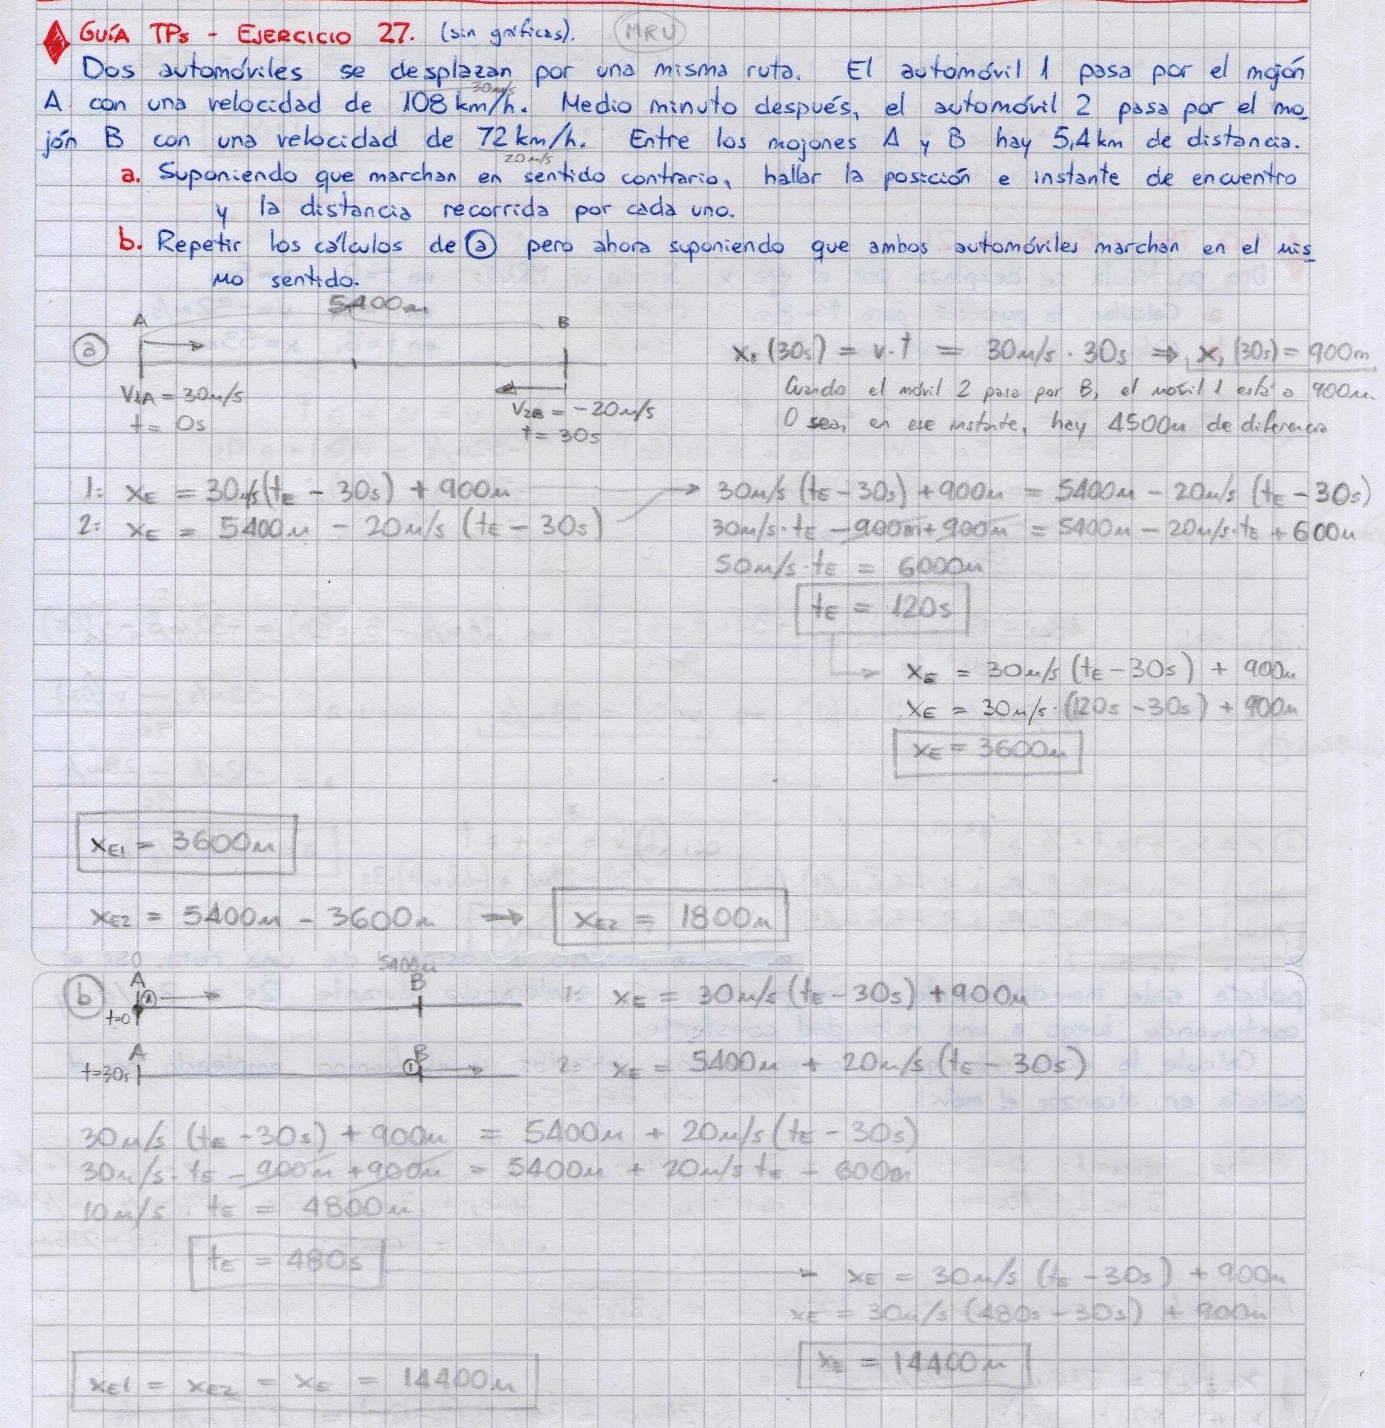 GUÍA TPs - EJERCICIO 27. (sin gráficas). MRU
Dos automóviles se desplazan por una misma ruta. El automóvil 1 pasa por el mojón
30m/s
A con una velocidad de 108 km/h. Medio minuto después, el automóvil 2 pasa por el mo
jón B con una velocidad de 72 km/h. Entre los mojones A y B hay 5,4 km de distancia.
20m/s
a. Suponiendo que marchan en sentido contrario, hallar la posición e instante de encuentro
y la distancia recorrida por cada uno.
b. Repetir los cálculos de a pero ahora suponiendo que ambos automóviles marchan en el mis
mo sentido.
5400m
A B
a
V1A = 30m/s
t = 0s
V2B = -20m/s
t = 30s
x1 (30s) = v·t = 30m/s · 30s ⇒ x1 (30s) = 900m
Cuando el móvil 2 pasa por B, el móvil 1 está a 900m.
O sea, en ese instante, hay 4500m de diferencia
1: xE = 30m/s(tE - 30s) + 900m
2: xE = 5400m - 20m/s (tE - 30s)
30m/s (tE - 30s) + 900m = 5400m - 20m/s (tE - 30s)
30m/s·tE - 900m + 900m = 5400m - 20m/s·tE + 600m
50m/s·tE = 6000m
tE = 120s
xE = 30m/s (tE - 30s) + 900m
xE = 30m/s·(120s - 30s) + 900m
xE = 3600m
xE1 = 3600m
xE2 = 5400m - 3600m → xE2 = 1800m
b
A 5400m B
1
t=0
A B
t=30s 1
1: xE = 30m/s (tE - 30s) + 900m
2: xE = 5400m + 20m/s (tE - 30s)
30m/s (tE - 30s) + 900m = 5400m + 20m/s (tE - 30s)
30m/s · tE - 900m + 900m = 5400m + 20m/s tE - 600m
10m/s · tE = 4800m
tE = 480s
xE = 30m/s (tE - 30s) + 900m
xE = 30m/s (480s - 30s) + 900m
xE = 14400m
xE1 = xE2 = xE = 14400m